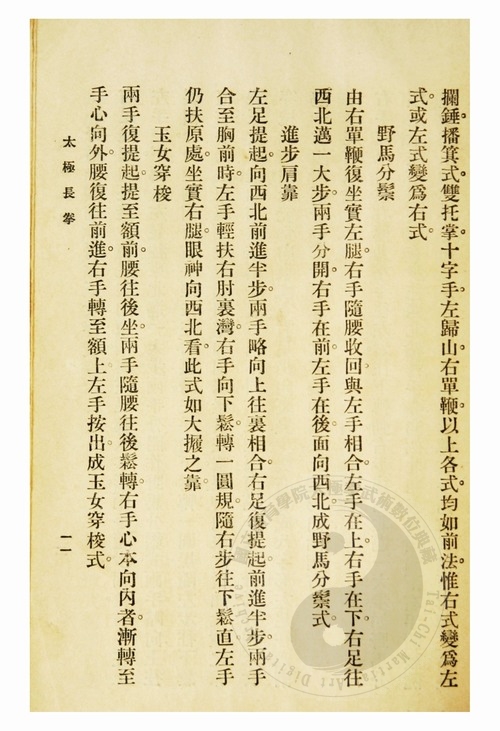 攔錘播箕式雙托掌十字手左歸山右單鞭以上各式均如前法惟右式變爲左
式或左式變爲右式
野馬分鬃
由右單鞭復坐實左腿右手隨腰收回與左手相合左手在上右手在下右足往
西北邁一大步兩手分開右手在前左手在後面向西北成野馬分鬃式
進步肩靠
左足提起向西北前進半步兩手略向上往裏相合右足復提起前進半步兩手
合至胸前時左手輕扶右肘裏灣右手向下鬆轉一圓規隨右步往下鬆直左手
仍扶原處坐實右腿眼神向西北看此式如大握之靠
玉女穿梭
兩手復提起提至額前腰往後坐兩手隨腰往後鬆轉右手心本向內者漸轉至
手心向外腰復往前進右手轉至額上左手按出成玉女穿梭式
太極長拳
一一
Tai-Chi Martial Art Digital